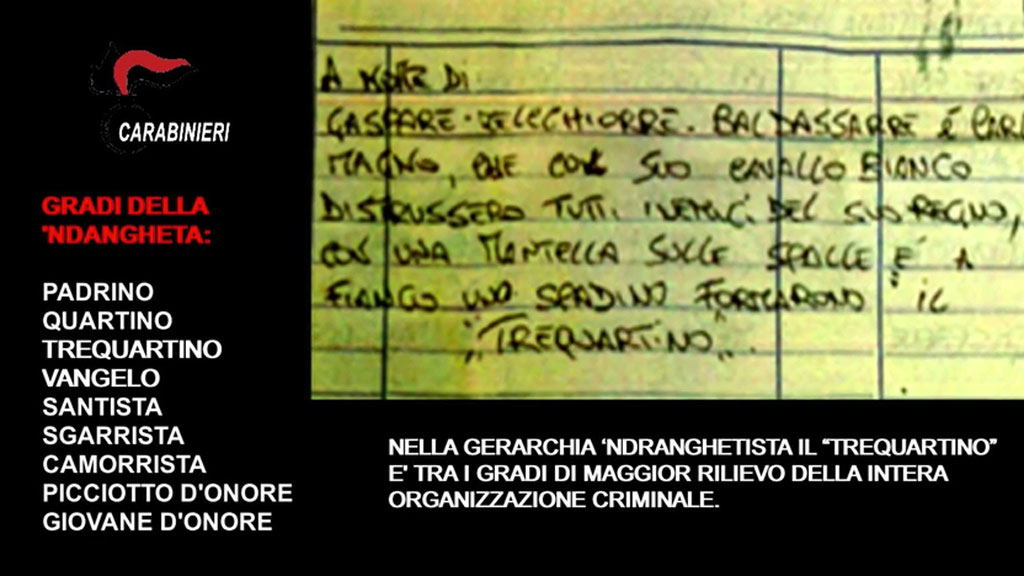 CARABINIERI
GRADI DELLA
'NDANGHETA:
PADRINO
QUARTINO
TREQUARTINO
VANGELO
SANTISTA
SGARRISTA
CAMORRISTA
PICCIOTTO D'ONORE
GIOVANE D'ONORE
A NOME DI
GASPARE. MELCHIORRE. BALDASSARRE E CARL
MAGNO, CHE CON SUO CAVALLO BIANCO
DISTRUSSERO TUTTI I NEMICI DEL SUO REGNO,
CON UNA MANTELLA SULLE SPALLE E A
FIANCO UNO SPADINO FORMARONO IL
"TREQUARTINO".
NELLA GERARCHIA ‘NDRANGHETISTA IL “TREQUARTINO”
E' TRA I GRADI DI MAGGIOR RILIEVO DELLA INTERA
ORGANIZZAZIONE CRIMINALE.